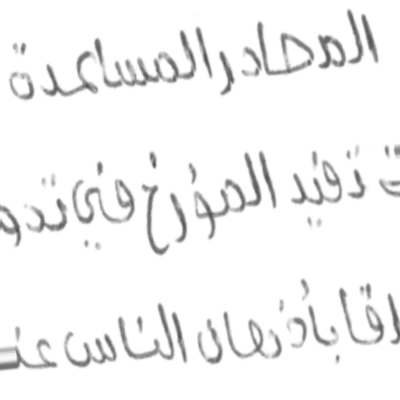 المصادر المساعدة
تفيد المؤرخ في تدو
قا بأذهان الناس عنـ